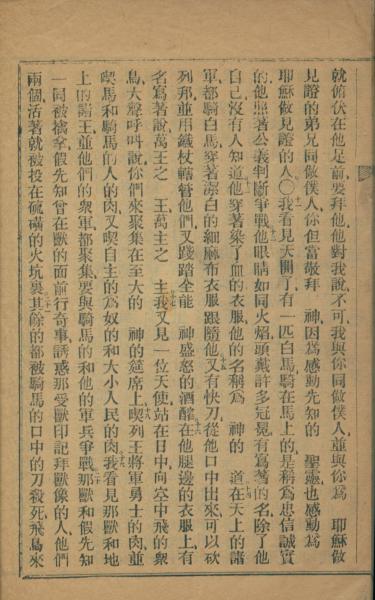 就俯伏在他足前要拜他他對我說不可我與你同做僕人並與你爲　耶穌做
見證的弟兄同做僕人你但當敬拜　神因爲感動先知的　聖靈也感動爲
耶穌做見證的人○我看見天開了有一匹白馬騎在馬上的是稱爲忠信誠實
的他照著公義判斷爭戰他眼睛如同火焰頭戴許多冠冕有寫著的名除了他
自己沒有人知道他穿著染了血的衣服他的名稱爲　神的　道在天上的諸
軍都騎白馬穿著潔白的細麻布衣服跟隨他又有快刀從他口中出來可以砍
列邦並用鐵杖轄管他們又踐踏全能　神盛怒的酒醡在他腿邊的衣服上有
名寫著說萬王之　王萬主之　主我又見一位天使站在日中向空中飛的衆
鳥大聲呼叫說你們來聚集在至大的　神的筵席上喫列王將軍勇士的肉並
喫馬和騎馬的人的肉又喫自主的爲奴的和大小人民的肉我看見那獸和地
上的諸王並他們的衆軍都聚集要與騎馬的和他的軍兵爭戰那獸和假先知
一同被擒拿假先知曾在獸的面前行奇事誘惑那受獸印記拜獸像的人他們
兩個活著就被投在硫磺的火坑裏其餘的都被騎馬的口中的刀殺死飛鳥來